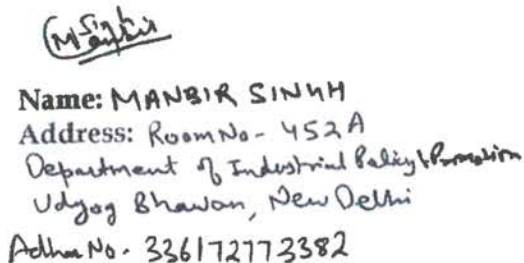 M Singh
Name: MANBIR SINGH
Address: Room No - 452A
Department of Industrial Policy & Promotion
Udyog Bhawan, New Delhi
Adhar No. 336172773382